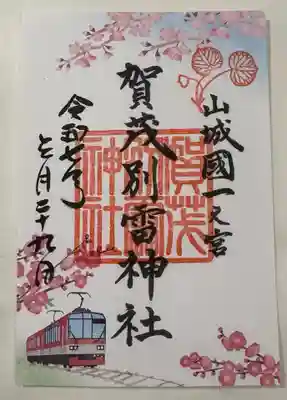 山城國一之宮
賀茂別雷神社
令和七年
七月二十九日
賀茂
別雷
神社